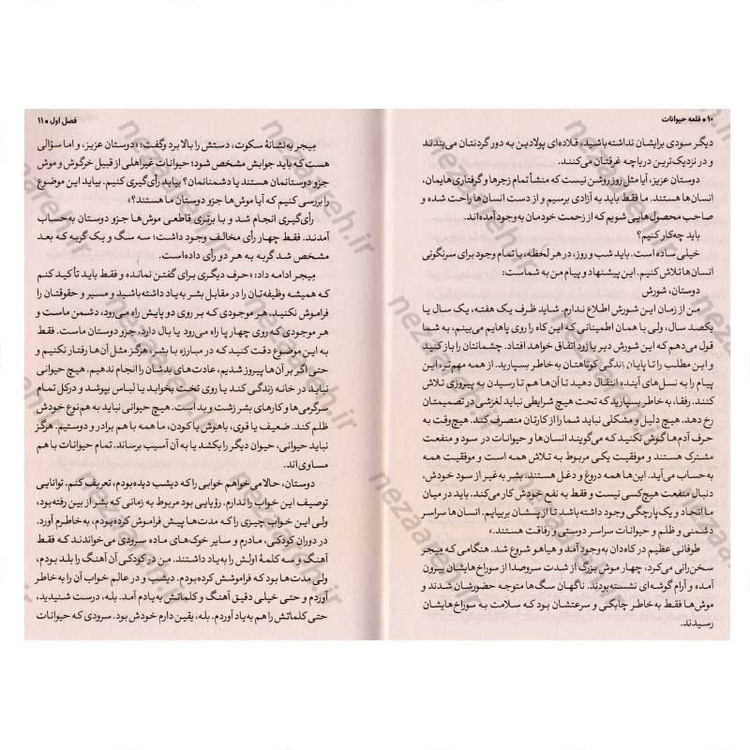 ۱۰ ● قلعه حیوانات
دیگر سودی برایشان نداشته‌باشید، قلاده‌ای پولادین به دور گردنتان می‌بندند
و در نزدیک‌ترین دریاچه غرقتان می‌کنند.
دوستان عزیز، آیا مثل روز روشن نیست که منشأ تمام زجرها و گرفتاری هایمان،
انسان‌ها هستند. ما فقط باید به آزادی برسیم و از دست انسان‌ها راحت شده و
صاحب محصول‌هایی شویم که از زحمت خودمان به‌وجود آمده‌اند.
باید چه‌کار کنیم؟
خیلی ساده است. باید شب و روز، در هر لحظه، با تمام وجود برای سرنگونی
انسان‌ها تلاش کنیم. این پیشنهاد و پیام من به شماست:
دوستان، شورش
من از زمان این شورش اطلاع ندارم. شاید ظرف یک هفته، یک سال یا
یکصد سال، ولی با همان اطمینانی که این کاه را روی پاهایم می‌بینم، به شما
قول می‌دهم که این شورش دیر یا زود اتفاق خواهد افتاد. چشمانتان را باز کنید
و این مطلب را تا پایان زندگی کوتاهتان به‌خاطر بسپارید. از همه مهم‌تر، این
پیام را به نسل‌های آینده انتقال دهید تا آن‌ها هم تا رسیدن به پیروزی تلاش
کنند. رفقا، به خاطر بسپارید که تحت هیچ شرایطی نباید لغزشی در تصمیمتان
رخ دهد. هیچ دلیل و مشکلی نباید شما را از کارتان منصرف کند. هیچ‌وقت به
حرف آدم‌ها گوش نکنید که می‌گویند انسان‌ها و حیوانات در سود و منفعت
مشترک هستند و موفقیت یکی مربوط به تلاش همه است و موفقیت همه
به‌حساب می‌آید. این‌ها همه دروغ و دغل هستند. بشر به‌غیر از سود خودش،
دنبال منفعت هیچ‌کسی نیست و فقط به نفع خودش کار می‌کند. باید در میان
ما اتحاد و یک‌پارچگی وجود داشته‌باشد تا از پسشان بربیاییم. انسان‌ها سراسر
دشمنی و ظلم و حیوانات سراسر دوستی و رفاقت هستند.»
طوفانی عظیم در کاه‌دان به‌وجود آمد و هیاهو شروع شد. هنگامی که میجر
سخن‌رانی می‌کرد، چهار موش بزرگ از شدت سروصدا از سوراخ‌هایشان بیرون
آمده و آرام گوشه‌ای نشسته‌بودند. ناگهان سگ‌ها متوجه حضورشان شدند و
موش‌ها فقط به‌خاطر چابکی و سرعتشان بود که سلامت به سوراخ‌هایشان
رسیدند.
فصل اول ● ۱۱
میجر به‌نشانهٔ سکوت، دستش را بالا برد و گفت: «دوستان عزیز، و اما سؤالی
هست که باید جوابش مشخص شود؛ حیوانات غیراهلی از قبیل خرگوش و موش
جزو دوستانمان هستند یا دشمنانمان؟ بیاید رأی‌گیری کنیم. بیاید این موضوع
را بررسی کنیم که آیا موش‌ها جزو دوستان ما هستند؟»
رأی‌گیری انجام شد و با برتری قاطعی موش‌ها جزو دوستان به‌حساب
آمدند. فقط چهار رأی مخالف وجود داشت؛ سه سگ و یک گربه که بعد
مشخص شد گربه به هر دو رأی داده‌است.
میجر ادامه داد: «حرف دیگری برای گفتن نمانده و فقط باید تأکید کنم
که همیشه وظیفه‌تان را در مقابل بشر به‌یاد داشته‌باشید و مسیر و حقوقتان را
فراموش نکنید. هر موجودی که بر روی دو پایش راه می‌رود، دشمن ماست و
هر موجودی که روی چهار پا راه می‌رود یا بال دارد، جزو دوستان ماست. فقط
به این موضوع دقت کنید که در مبارزه با بشر، هرگز مثل آن‌ها رفتار نکنیم و
حتی اگر بر آن‌ها پیروز شدیم، عادت‌های بدشان را انجام ندهیم. هیچ حیوانی
نباید در خانه زندگی کند یا روی تخت بخوابد یا لباس بپوشد و درکل تمام
سرگرمی‌ها و کارهای بشر زشت و بد است. هیچ حیوانی نباید به هم‌نوع خودش
ظلم کند. ضعیف یا قوی، باهوش یا کودن، ما همه با هم برادر و دوستیم. هرگز
نباید حیوانی، حیوان دیگر را بکشد یا به آن آسیب برساند. تمام حیوانات با هم
مساوی‌اند.
دوستان، حالا می‌خواهم خوابی را که دیشب دیده‌بودم، تعریف کنم. توانایی
توصیف این خواب را ندارم. رؤیایی بود مربوط به زمانی که بشر از بین رفته‌بود،
ولی این خواب چیزی را که مدت‌ها پیش فراموش کرده‌بودم، به‌خاطرم آورد.
در دوران کودکی، مادرم و سایر خوک‌های ماده سرودی می‌خواندند که فقط
آهنگ و سه کلمهٔ اولش را به‌یاد داشتند. من در کودکی آن آهنگ را بلد بودم،
ولی مدت‌ها بود که فراموشش کرده‌بودم. دیشب و در عالم خواب آن را به خاطر
آوردم و حتی خیلی دقیق آهنگ و کلماتش به‌یادم آمد. بله، درست شنیدید،
حتی کلماتش را هم به‌یاد آوردم. بله، یقین دارم خودش بود. سرودی که حیوانات
nezaareh.ir